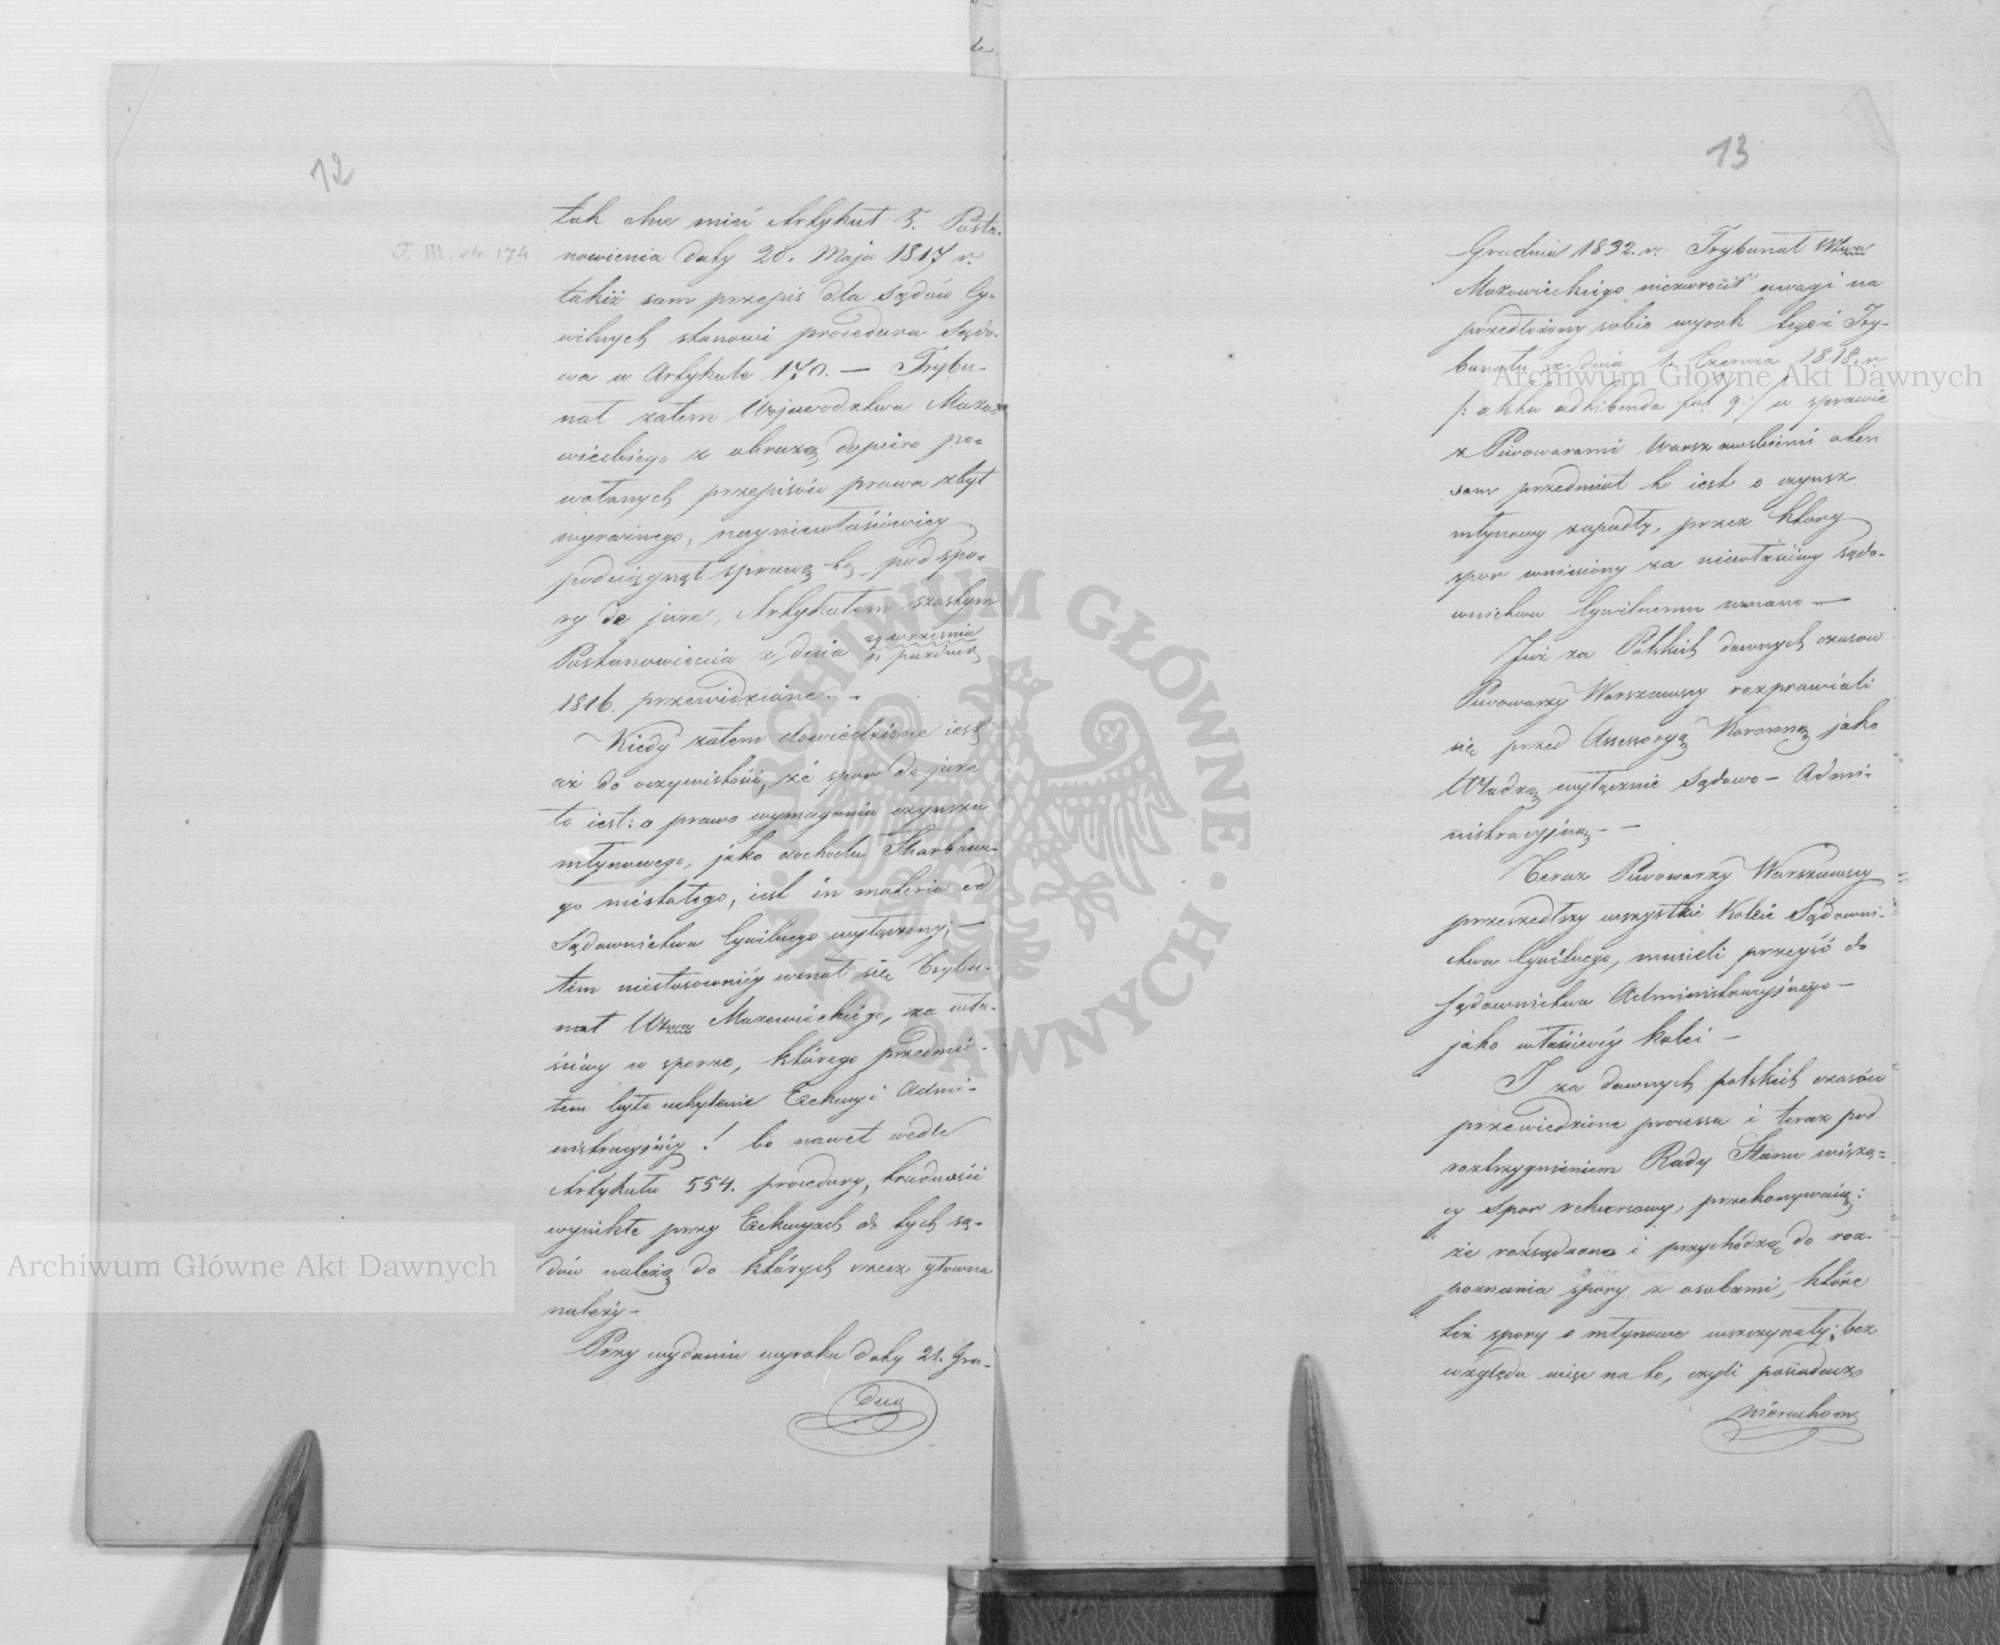 12
T. III. str. 174
tak chce mieć Artykuł 5. Posta-
nowienia daty 20. Maja 1817 r.
takiż sam przepis dla Sądów Cy-
wilnych stanowi procedura Sądo-
wa w Artykule 170. — Trybu-
nał zatem Województwa Mazo-
wieckiego z obrazą dopiero po-
wołanych przepisów prawa zbyt
wyraźnego, naymiewłaściwiey
podciągnął sprawę tę pod spo-
ry de jure, Artykułem szóstym
Postanowienia z dnia 29 września
11 paźdz
1816. przewidziane. —
Kiedy zatem dowiedzione iest
aż do oczywistości, że spor de jure
to iest: o prawo wymagania czynszu
młynowego, jako dochodu Skarbowe-
go niestałego, iest in materia od
Sądownictwa Cywilnego wyłączony; —
tem niestosowniéy uznał się Trybu-
nał Wtwa Mazowieckiego, za wła-
ściwy w sporze, którego przedmio-
tem było uchylenie Exekucyi Admi-
nistracyjnéy! bo nawet wedle
Artykułu 554. procedury, trudności
wynikłe przy Exekucyach do tych są-
dów należą do których rzecz główna
należy —
Przy wydaniu wyroku daty 21. Gru-
dnia
13
Grudnia 1832. r. Trybunał Wtwa
Mazowieckiego niezwrócił uwagi na
przedłożony sobie wyrok tegoż Try-
bunału z dnia 1. Czerwca 1818. r.
/: akta adhibenda fol. 9 :/ w sprawie
z Piwowarami Warszawskiemi o ten
sam przedmiot to iest o czynsz
młynowy zapadły, przez który
spor wniesiony za niewłaściwy Sądo-
wnictwu Cywilnemu uznano —
Już za Polskich dawnych czasow
Piwowarzy Warszawscy rozprawiali
się przed Assessoryą Koronną jako
Władzą wyłącznie Sądowo — Admi-
nistracyjną —
Teraz Piwowarzy Warszawscy
przeszedłszy wszystkie koleie Sądowni-
ctwa Cywilnego, musieli przeyść do
Sądownictwa Administracyjnego —
jako właściwéy kolei —
I za dawnych polskich czasów
przewiedzione processa i teraz pod
roztrzygnieniem Rady Stanu wiszą-
cy spor rekursowy, przekonywaią:
że rozsądzono i przychodzą do roz-
poznania spory z osobami, które
też spory o młynowe wszczynały; bez
względu więc na to, czyli posiadacz
nieruchom
Archiwum Główne Akt Dawnych
Archiwum Główne Akt Dawnych
ARCHIWUM GŁÓWNE AKT DAWNYCH